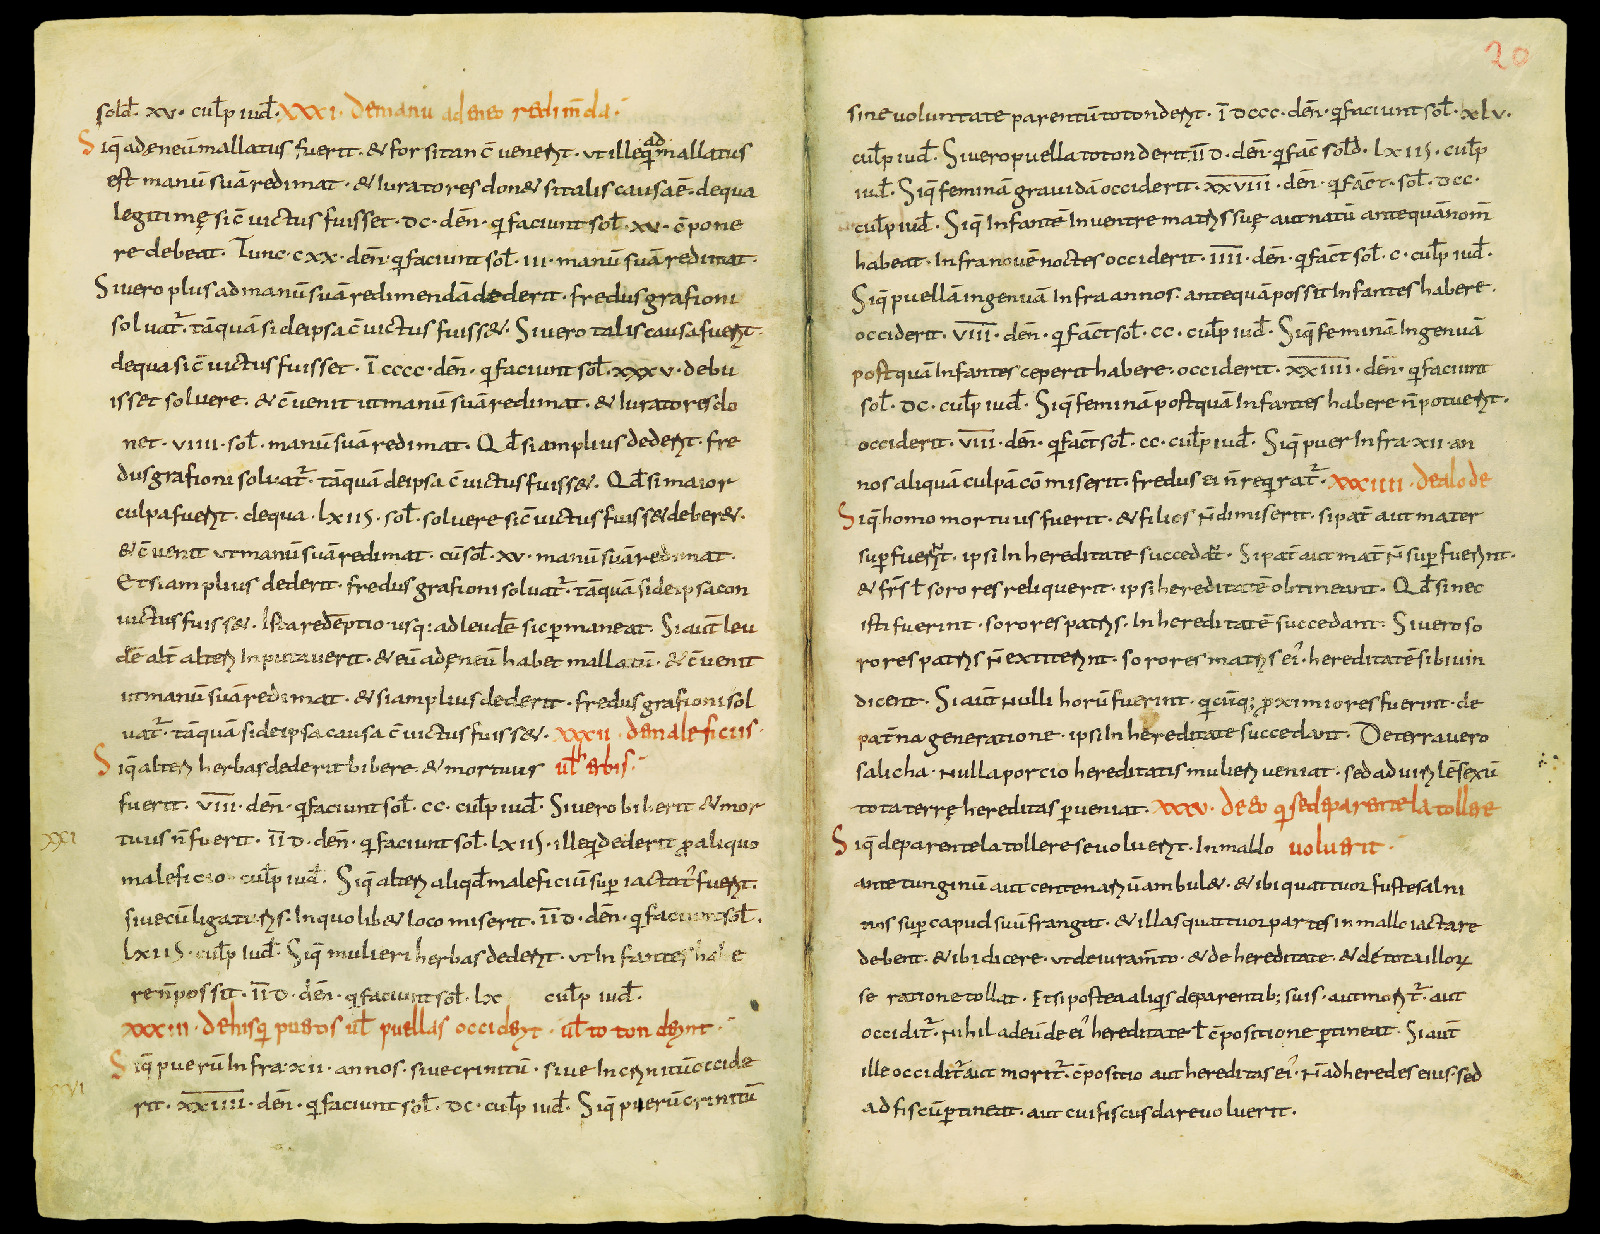 sold̄. xv. cul̄p iud̄. XXXI. De manu ad eneo redim̄da.
Siq̄ ad eneū mallatus fuerit. & forsitan c̄ueneƦt. ut ille q̄ ad mallatus
est manū suā redimat. & Iuratores don& si talis causa ē. de qua
legitimę si c̄uictus fuisset. DC. den̄. q̄ faciunt sol̄. xv. c̄pone
re debeat. Tunc. cxx. den̄. q̄ faciunt sol̄. III. manū suā redimat.
Si vero plus ad manū suā redimendā dederit. fredus grafioni
soluat᷑. tāquā si de ipsa c̄uictus fuiss&. Si vero talis causa fueƦt.
de qua si c̄uictus fuisset. Ī cccc. den̄. q̄ faciunt sol̄. xxxv. debu
isset solvere. & c̄uenit ut manū suā redimat. & Iuratores do
net. VIIII. sol̄. manū suā redimat. Qd̄ si amplius dedeƦt. fre
dus grafioni soluat᷑. tāquā de ipsa c̄uictus fuiss&. Qd̄ si maior
culpa fueƦt. de qua. lxIIS. sol̄. solvere si c̄uictus fuiss& deber&.
& c̄uenit ut manū suā redimat. cū sol̄. xv. manū suā redimat.
Et si amplius dederit. fredus grafioni soluat᷑. tāquā si de ipsa con
uictus fuiss&. Ista redēptio usq; ad leudē sic p̄maneat. Si aut̄ leu
dē alt̄ alteƦ Inputaverit. & eū ad eneū habet mallatū. & c̄uenit
ut manū suā redimat. & si amplius dederit. fredus grafioni sol
uat᷑. tāquā si de ipsa causa c̄uictus fuiss&. XXXII. De maleficiis.
Siq̄ alteƦ herbas dederit bibere. & mortuus ul̄ erbis.
fuerit. V̄III. den̄. q̄ faciunt sol̄. cc. cul̄p iud̄. Si vero biberit & mor
tuus n̄ fuerit. ĪI D. den̄. q̄ faciunt sol̄. lxIIS. ille q̄ dederit p̄ aliquo
maleficio. cul̄p iud̄. Siq̄ alteƦ aliqd̄ maleficiū sup̄ iactat᷑ fueƦt.
sive cū ligatuƦs. In quo lib& loco miserit. ĪI D. den̄. q̄ faciunt sol̄.
lxIIS. cul̄p iud̄. Siq̄ mulieri herbas dedeƦt. ut Infantes habe
re n̄ possit. ĪI D. den̄. q̄ faciunt sol̄. lx cul̄p iud̄.
XXXIII. De his q̄ pueros ul̄ puellas occideƦt. ul̄ totondeƦnt.
Siq̄ puerū Infra. xII. annos. sive crinitū. sive IncƦnitū occide
rit. X̄X̄IIII. den̄. q̄ faciunt sol̄. DC. cul̄p iud̄. Siq̄ puerū crinitū
XXI
XXVI
20
sine voluntate parentū totondeƦt. Ī DCCC. den̄. q̄ faciunt sol̄. xlv.
cul̄p iud̄. Si vero puella totonderit ĪI D. den̄. q̄ fac̄ sold̄. lxIIS. cul̄p
iud̄. Siq̄ feminā gravidā occiderit. X̄X̄VIII. den̄. q̄ fac̄t. sol̄. DCC.
cul̄p iud̄. Siq̄ Infantē In ventre matƦs suę aut natū antequā nom̄
habeat. Infra novē noctes occiderit. ĪIII. den̄. q̄ fac̄t sol̄. c. cul̄p iud̄.
Siq̄ puellā ingenuā Infra annos. antequā possit Infantes habere.
occiderit. V̄III. den̄. q̄ fac̄t sol̄. cc. cul̄p iud̄. Siq̄ feminā Ingenuā
postquā Infantes ceperit habere. occiderit. X̄X̄IIII. den̄. q̄ faciunt
sol̄. DC. cul̄p iud̄. Siq̄ feminā postquā Infantes habere n̄ potueƦt.
occiderit. V̄III. den̄. q̄ fac̄t sol̄. cc. cul̄p iud̄. Siq̄ puer Infra. xII. an
nos aliquā culpā cōmiserit. fredus ei n̄ reqrat᷑. XXXIIII. De alode
Siq̄ homo mortuus fuerit. & filios n̄ dimiserit. si pat̄ aut mater
sup̄fueƦt. ipsi In hereditate succedat. Si pat̄ aut mat̄ n̄ sup̄fueƦnt.
& fr̄s l̄ sorores reliquerit. ipsi hereditatē obtineant. Qd̄ si nec
isti fuerint. sorores patƦs. In hereditatē succedant. Si vero so
rores patƦs n̄ extiteƦnt. sorores matƦs ei᷑. hereditatē sibi uin
dicent. Si aut̄ nulli horū fuerint. q̄cūq; p̄ximiores fuerint. de
pat̄na generatione. ipsi In hereditate succedant. De terra vero
salicha. nulla porcio hereditatis mulieƦ veniat. sed ad uiƦlē sexū
tota terrę hereditas p̄veniat. XXXV. De eo q̄ se de parentela tollere
Siq̄ de parentela tollere se volueƦt. In mallo voluerit.
ante tunginū aut centenaƦū ambul&. & ibi quattuor fustes alni
nos sup̄ capud suū frangat. & illas quattuor partes in mallo iactare
debent. & ibi dicere. ut de iuram̄to. & de hereditate. & de tota illoꝝ
se ratione tollat. Et si postea aliq̄s de parentib; suis. aut moƦt᷑. aut
occidit᷑. nihil ad eū de ei᷑ hereditate l̄ c̄positione p̄tineat. Si aut̄
ille occidit᷑ aut morit᷑. c̄positio aut hereditas ei᷑. n̄ ad heredes eius. sed
ad fiscū p̄tineat. aut cui fiscus dare voluerit.